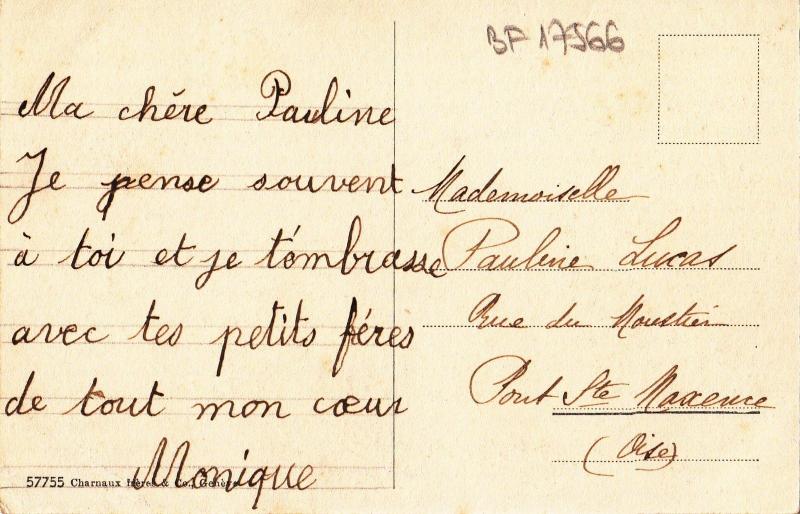 BF 17566
Ma chére Pauline
Je pense souvent
à toi et je t'émbrasse
avec tes petits féres
de tout mon cœur
Monique
Mademoiselle
Pauline Lucas
Rue du Moustier
Pont Ste Maxence
(Oise)
57755 Charnaux frères & Co., Genève